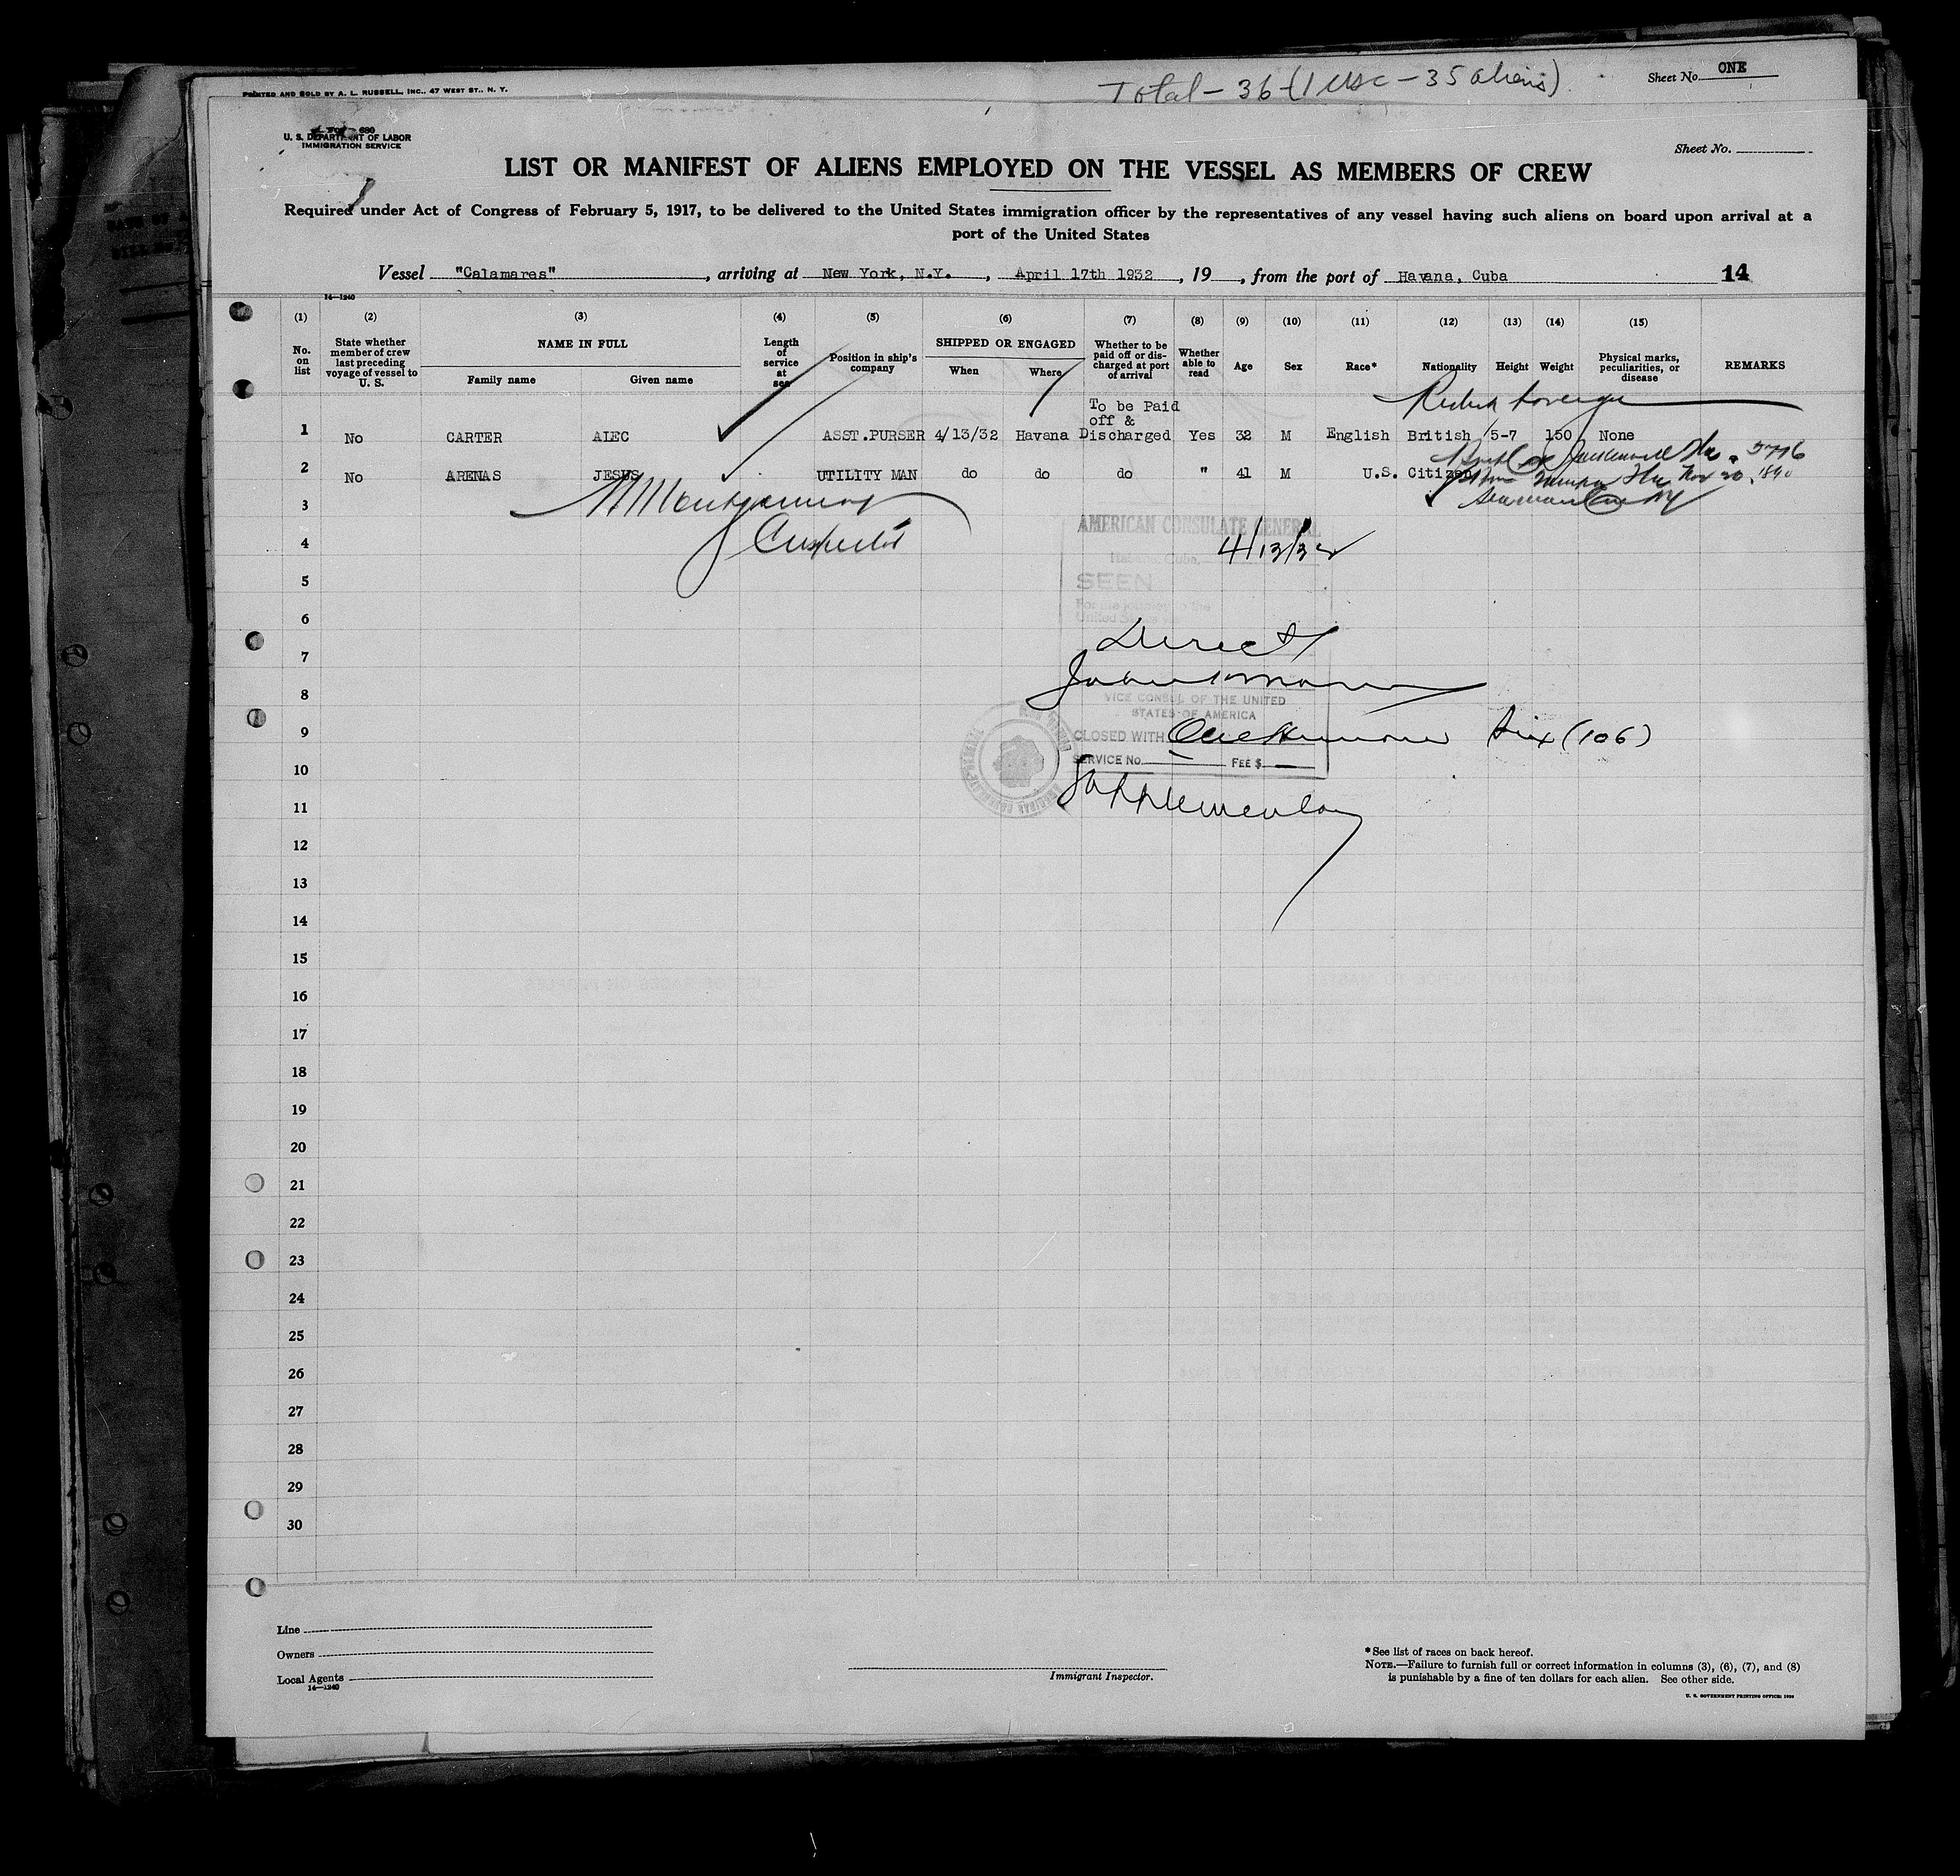 PRINTED AND SOLD BY A. L. RUSSELL, INC., 47 WEST ST., N. Y.
Total - 36 - (1 USC - 35 aliens)
Sheet No. ONE
680
U. S. DEPARTMENT OF LABOR
IMMIGRATION SERVICE
Sheet No.
LIST OR MANIFEST OF ALIENS EMPLOYED ON THE VESSEL AS MEMBERS OF CREW
Required under Act of Congress of February 5, 1917, to be delivered to the United States immigration officer by the representatives of any vessel having such aliens on board upon arrival at a
port of the United States
Vessel "Calamares", arriving at New York, N.Y., April 17th 1932, 19, from the port of Havana, Cuba 14
14—1240
(1) (2) (3) (4) (5) (6) (7) (8) (9) (10) (11) (12) (13) (14) (15)
No. on list
State whether member of crew last preceding voyage of vessel to U. S.
NAME IN FULL
Family name
Given name
Length of service at sea
Position in ship's company
SHIPPED OR ENGAGED
When
Where
Whether to be paid off or discharged at port of arrival
Whether able to read
Age
Sex
Race*
Nationality
Height
Weight
Physical marks, peculiarities, or disease
REMARKS
1 No CARTER ALEC ASST.PURSER 4/13/32 Havana To be Paid off & Discharged Yes 32 M English British 5-7 150 None
2 No ARENAS JESUS UTILITY MAN do do do " 41 M U.S. Citizen
Jacksonville Fla. 5776
Tampa Fla Nov 20, 1890
3
4
5
6
7
8
9
10
11
12
13
14
15
16
17
18
19
20
21
22
23
24
25
26
27
28
29
30
Montgomery
Inspector
AMERICAN CONSULATE GENERAL
Habana, Cuba, 4/13/32
SEEN
For the journey to the
United States via
Direct
VICE CONSUL OF THE UNITED
STATES OF AMERICA
CLOSED WITH One Hundred Six (106)
SERVICE No. FEE $
Supplementary
Line
Owners
Local Agents
14—1240
Immigrant Inspector.
*See list of races on back hereof.
NOTE.—Failure to furnish full or correct information in columns (3), (6), (7), and (8)
is punishable by a fine of ten dollars for each alien. See other side.